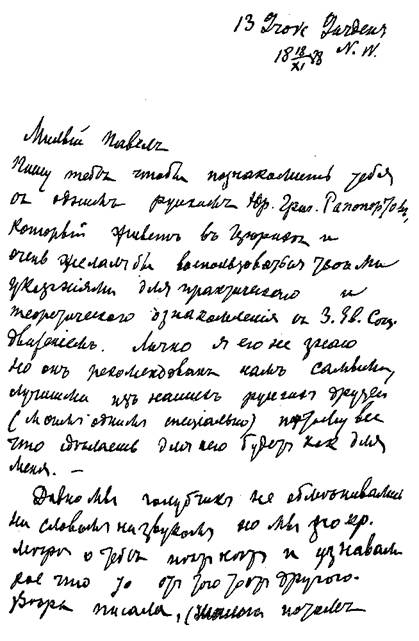 13 Grove Gardens
18 18/XI 88 N. W.
Милый Павелъ
Пишу тебѣ чтобы познакомить тебя
съ однимъ рускимъ Юр. Григ. Рапопортомъ,
который живетъ въ Цюрихѣ и
очень желалъ бы воспользоваться твоими
указаніями для практическаго и
теоретическаго ознакомленія съ З. Ев. Соц.
движеніемъ. Лично я его не знаю
но онъ рекомендованъ намъ самыми
лучшими изъ нашихъ рускихъ друзей
(моимъ однимъ спеціально) потому все
что сдѣлаешь для него будетъ какъ для
меня. —
Давно мы голубчикъ не обмѣнивались
ни словомъ ни звукомъ но мы
о тебѣ и узнавали
кое что то отъ того то отъ другого.
Вчера писала, потомъ